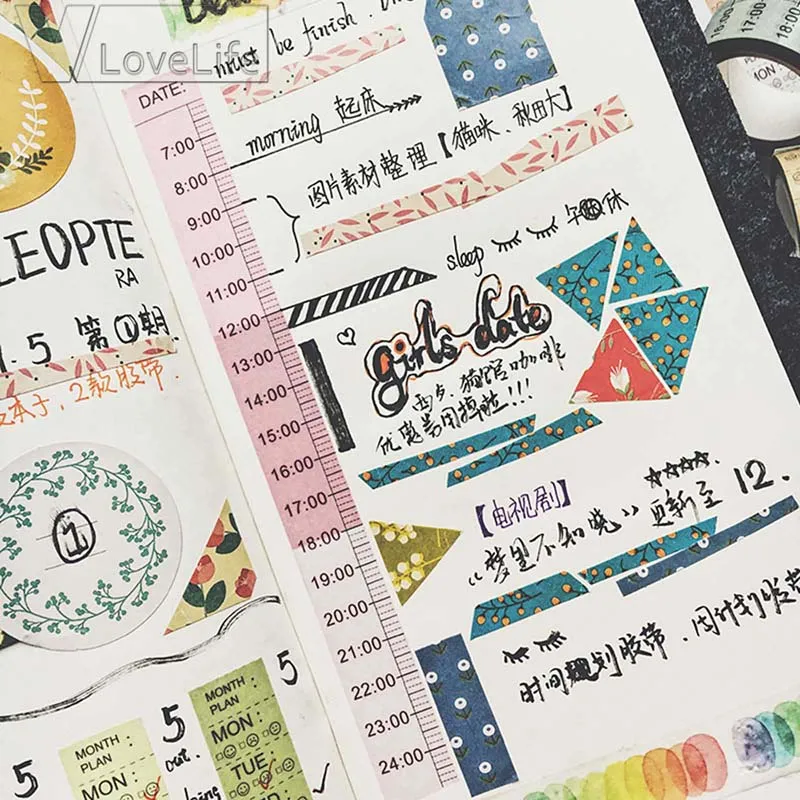 LoveLife
must be finish.
DATE:
morning 起床
7:00
8:00
图片素材整理【猫咪、秋田犬】
9:00
10:00
sleep 午休
11:00
12:00
girl's date
13:00
咖啡
14:00
优惠券用掉啦!!!
15:00
16:00
17:00
【电视剧】
18:00
《梦里不知晓》更新至 12.
19:00
20:00
21:00
时间规划胶带、周计划胶带
22:00
23:00
24:00
LEOPTE
RA
.5 第①期
本子,2款胶带.
1
5
5
5
MONTH
PLAN
MON:
MONTH
PLAN
MON:
TUE
out.
17:00
18:00
MON: